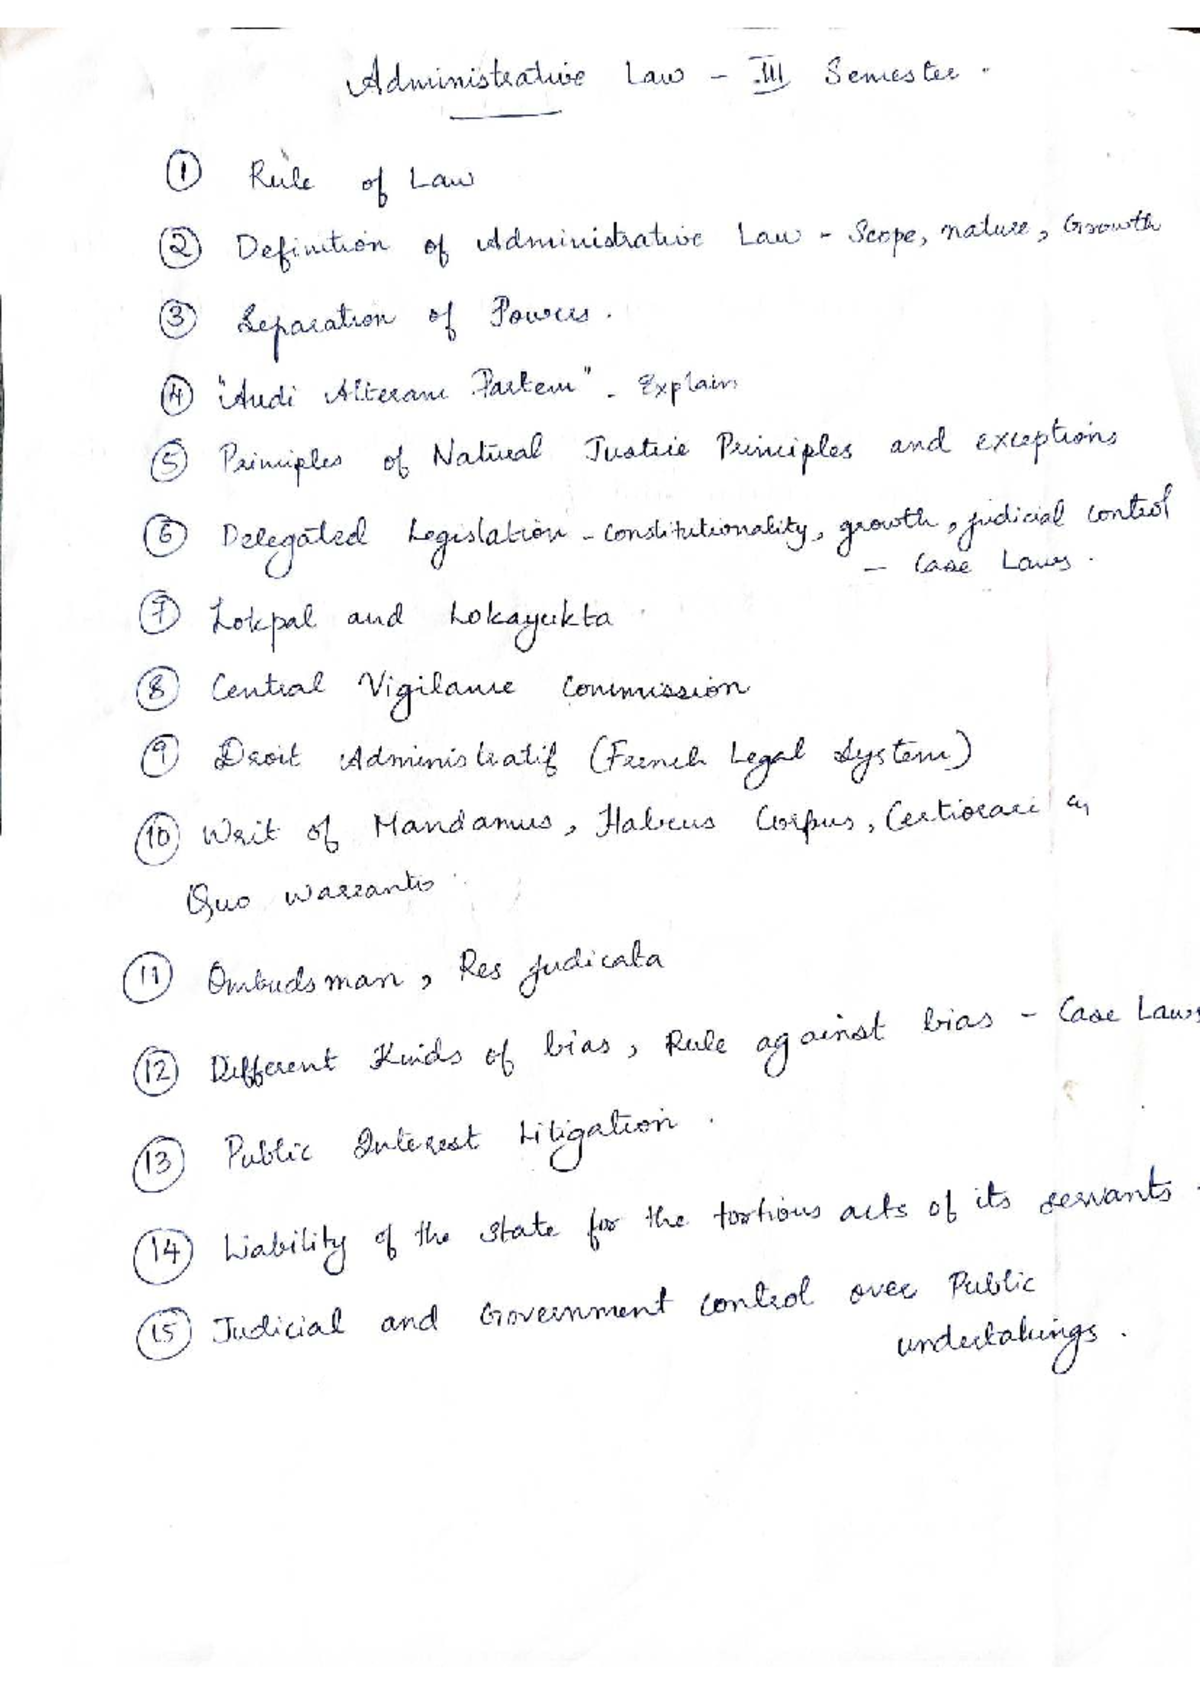 Administrative Law - III Semester.
① Rule of Law
② Definition of Administrative Law - Scope, nature, Growth
③ Separation of Powers.
④ "Audi Alteram Partem" - Explain
⑤ Principles of Natural Justice Principles and exceptions
⑥ Delegated Legislation - constitutionality, growth, judicial control
- Case Laws.
⑦ Lokpal and Lokayukta
⑧ Central Vigilance Commission
⑨ Droit Administratif (French Legal System)
⑩ Writ of Mandamus, Habeus Corpus, Certiorari &
Quo warranto
⑪ Ombudsman, Res judicata
⑫ Different Kinds of bias, Rule against bias - Case Laws
⑬ Public Interest Litigation.
⑭ Liability of the state for the tortious acts of its servants.
⑮ Judicial and Government control over Public
undertakings.